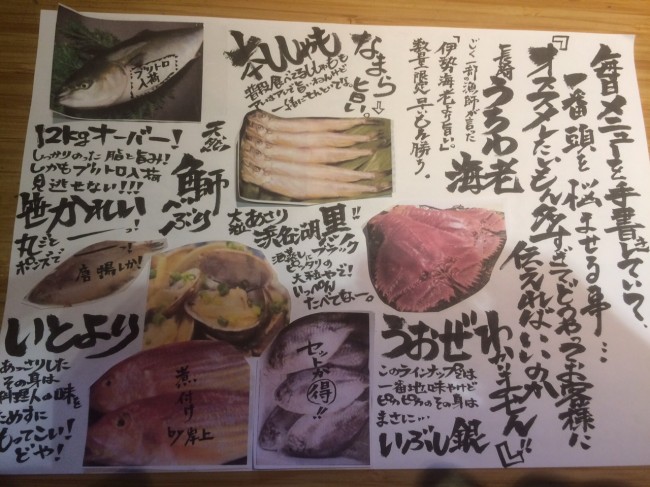 毎日メニューを手書きしていて、
一番頭を悩ませる事…
『オススメたいもん多すぎてどうやってお客様に
伝えればいいのか
わかりません』
長崎 うちわ海老
ごく一部の漁師が言った
「伊勢海老より旨い。」
数量限定 早いもん勝ち。
なまら旨い。
本ししゃも
普段食べてるししゃもも
アレはアレで旨いねんけど
一緒にせんといて。
ブリトロ
入荷
12kgオーバー!
天然
鰤
ぶり
しっかりのった脂と旨み!
しかもブリトロ入荷
見逃せない!!!
笹かれい
丸ごと
ポンズで
ーっ!
唐揚しか!
大粒あさり
浜名湖
ブラック
酒蒸しに
ピッタリの
大粒やで!
いっぺん
たべてなー。
いとより
あっさりした
その身は
料理人の味を
ためすに
もってこい!
どや!
煮付け
by岸上
セットが
得!!
うおぜ
このラインナップ名は
一番地味やけど
ピカピカのその身は
まさに…
いぶし銀